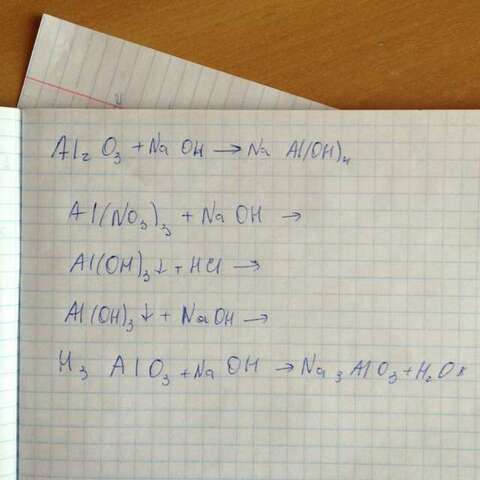 Al₂O₃ + NaOH → Na Al(OH)₄
Al(NO₃)₃ + NaOH →
Al(OH)₃↓ + HCl →
Al(OH)₃↓ + NaOH →
H₃AlO₃ + NaOH → Na₃AlO₃ + H₂O